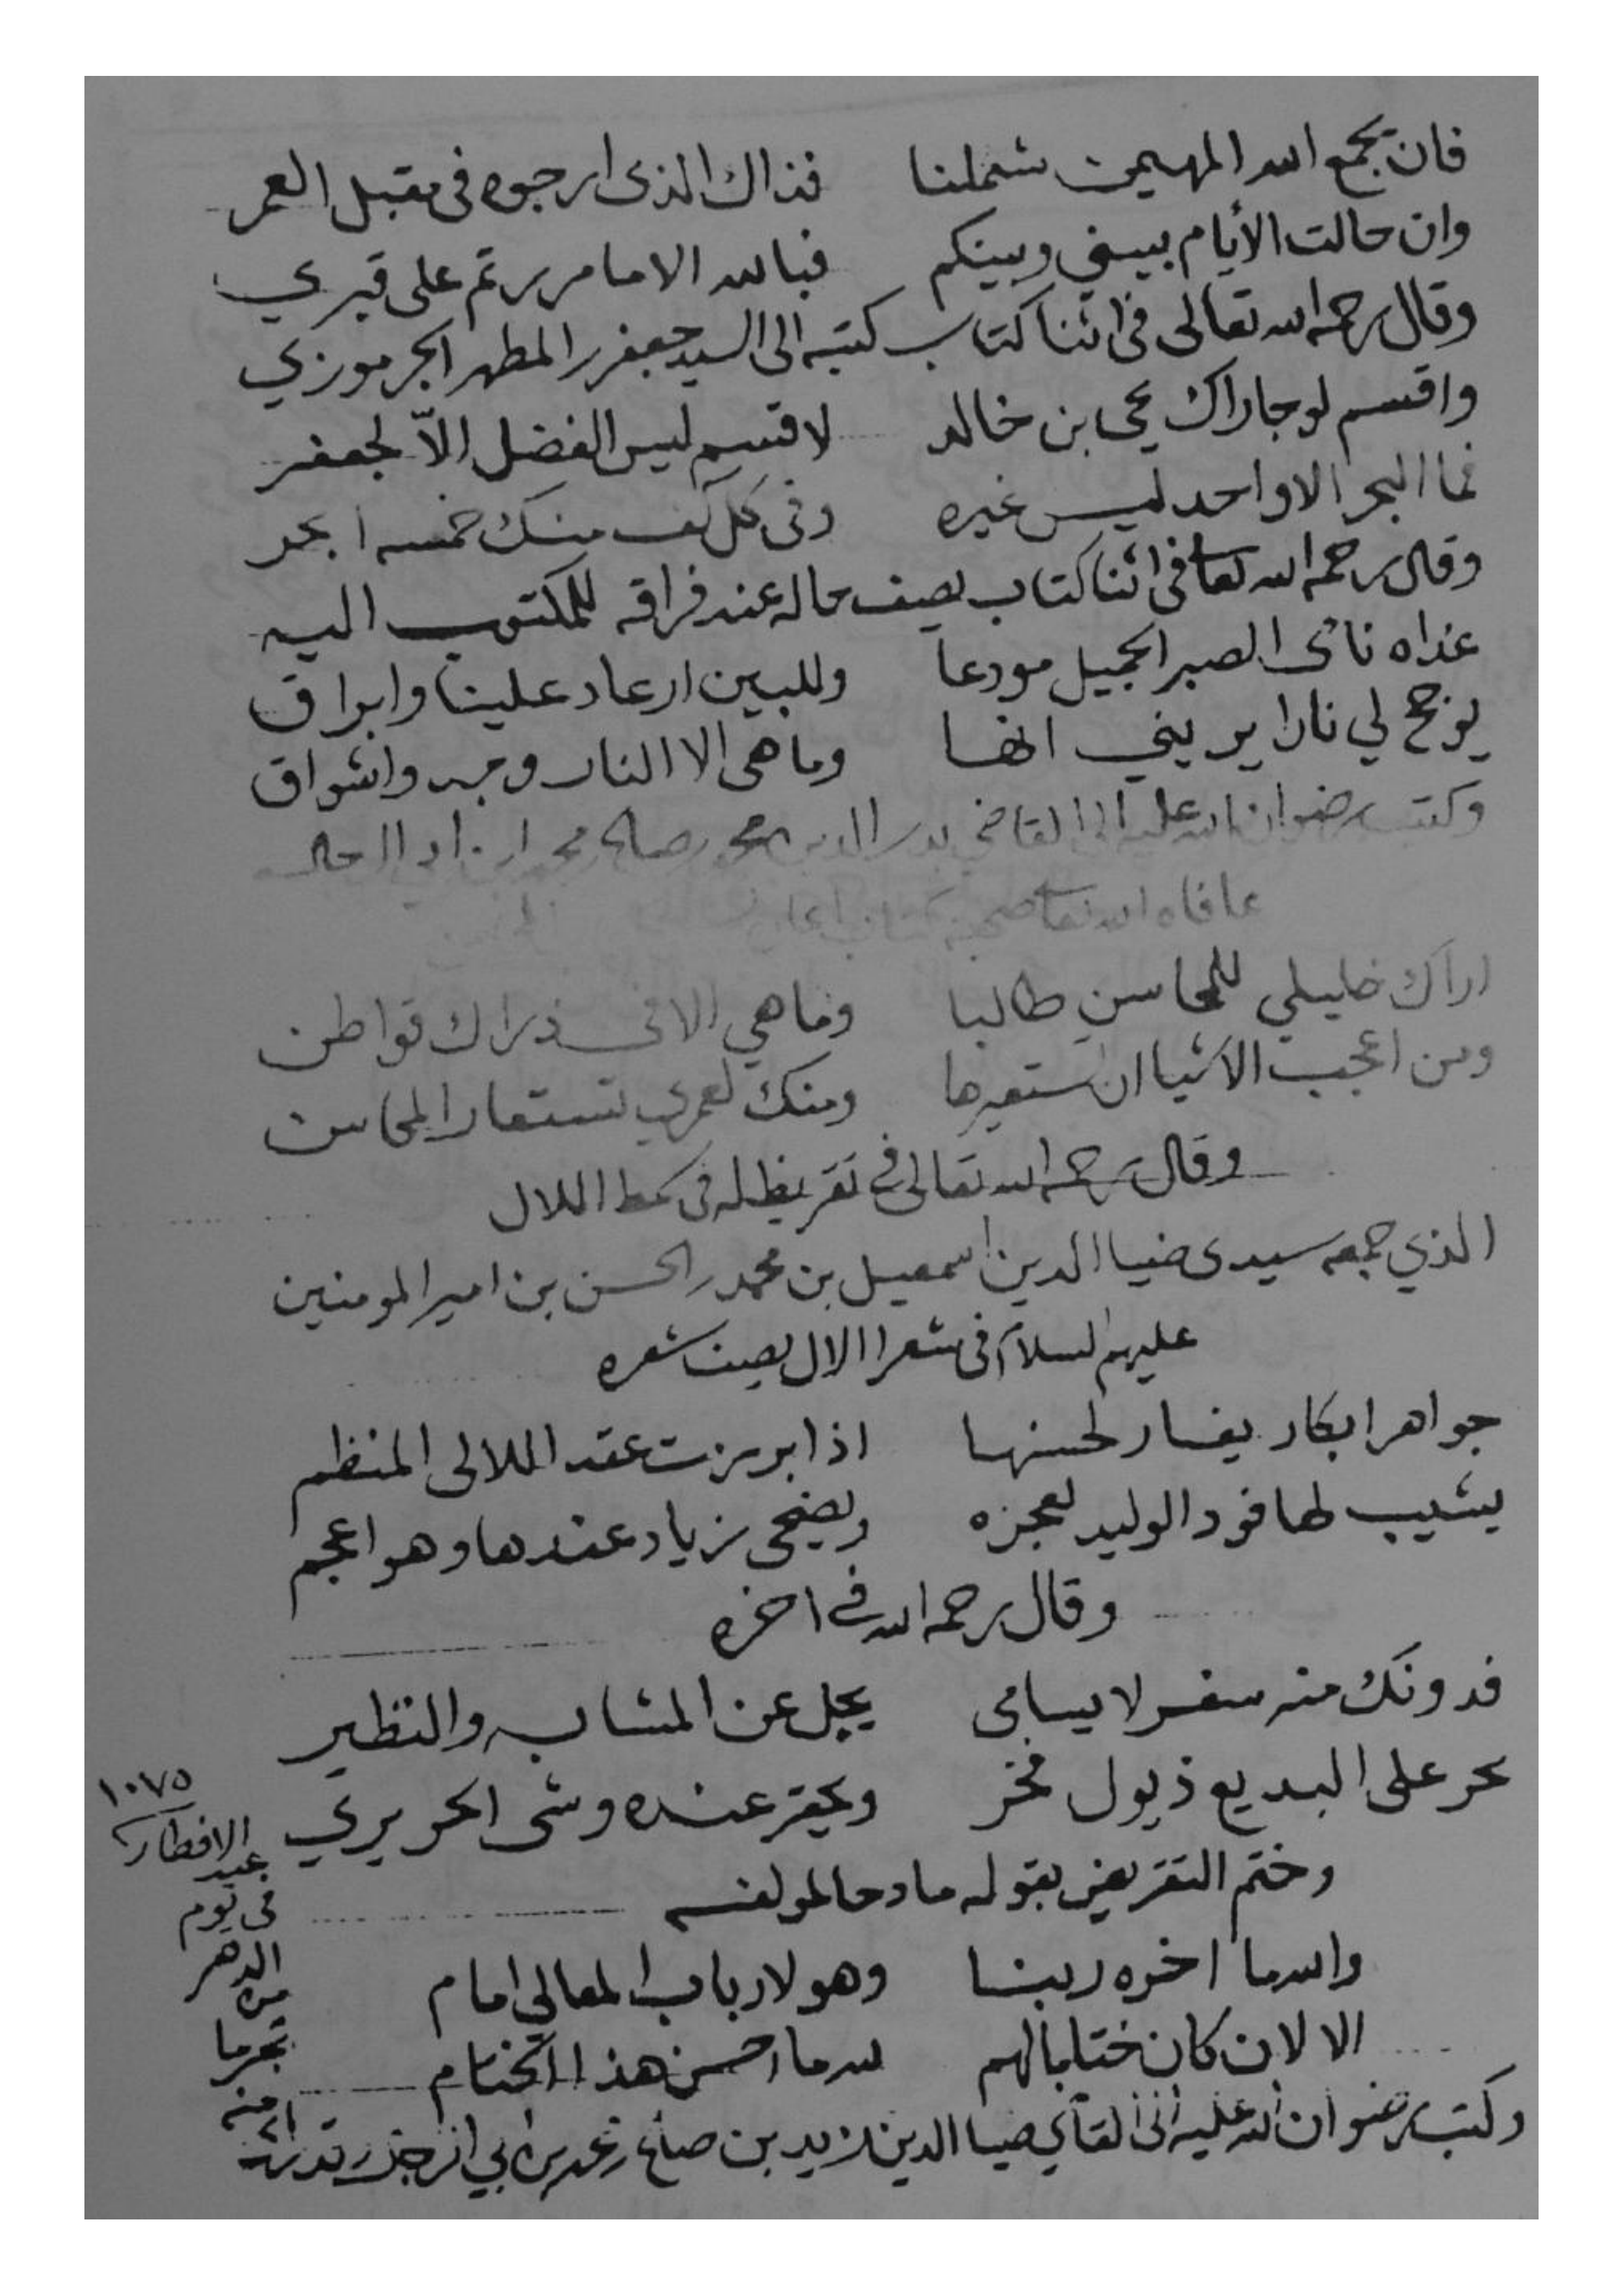 فان يجمع الله المهيمن شملنا فذاك الذى ارجوه فى مقبل العمر
وان حالت الأيام بيني وبينكم فبالله الا ما مررتم على قبري
وقال رحمه الله تعالى فى اثنا كتاب كتبه الى السيد جعفر المطهر الجرموزي
واقسم لو جاراك يحيى بن خالد لاقسم ليس الفضل إلاّ لجعفر
فما البحر الا واحد ليس غيره وفى كل كف منك خمسه ابحر
وقال رحمه الله تعا فى اثنا كتاب يصف حاله عند فراقه للمكتوب اليه
غداه نائ الصبر الجميل مودعا وللبين ارعاد علينا وابراق
يوجج لي نارا يريني انها وما هى الا النار وجد واشواق
وكتب رضوان الله عليه الى القاضي بدر الدين محمد صالح محمد ابن ابي الرجال
عافاه الله تعا صحبه كتاب
اراك خليلي للمحاسن طالبا وما هي الا فى ذراك قواطن
ومن اعجب الاشيا ان تستعيرها ومنك لعمري تستعار المحاسن
وقال رحمه الله تعالى في تقريظ له فى سمط اللال
الذي جمعه سيدى ضيا الدين اسمعيل بن محمد الحسن بن امير المومنين
عليهم السلام فى شعرا الال يصف شعره
جواهر ابكار يغار لحسنها اذا ابرزت عقد اللالى المنظم
يشيب لها فود الوليد لعجزه ويضحى زياد عندها وهو اعجم
وقال رحمه الله في اخره
فدونك منه سفر لا يسامى يجل عن المشابه والنظير
يجر على البديع ذيول فخر ويحقر عنده وشى الحريري
وختم التقريض بقوله مادحا لمولفه
والله ما اخره ربنا وهو لارباب المعالى امام
الا لان كان ختاما لهم لله ما احسن هذا الختام
وكتب رضوان الله عليه الى القاضي ضيا الدين زيد بن صالح محمد بن ابي الرجال
١٠٧٥
الافطار
عيد
فى يوم
الدهر
من